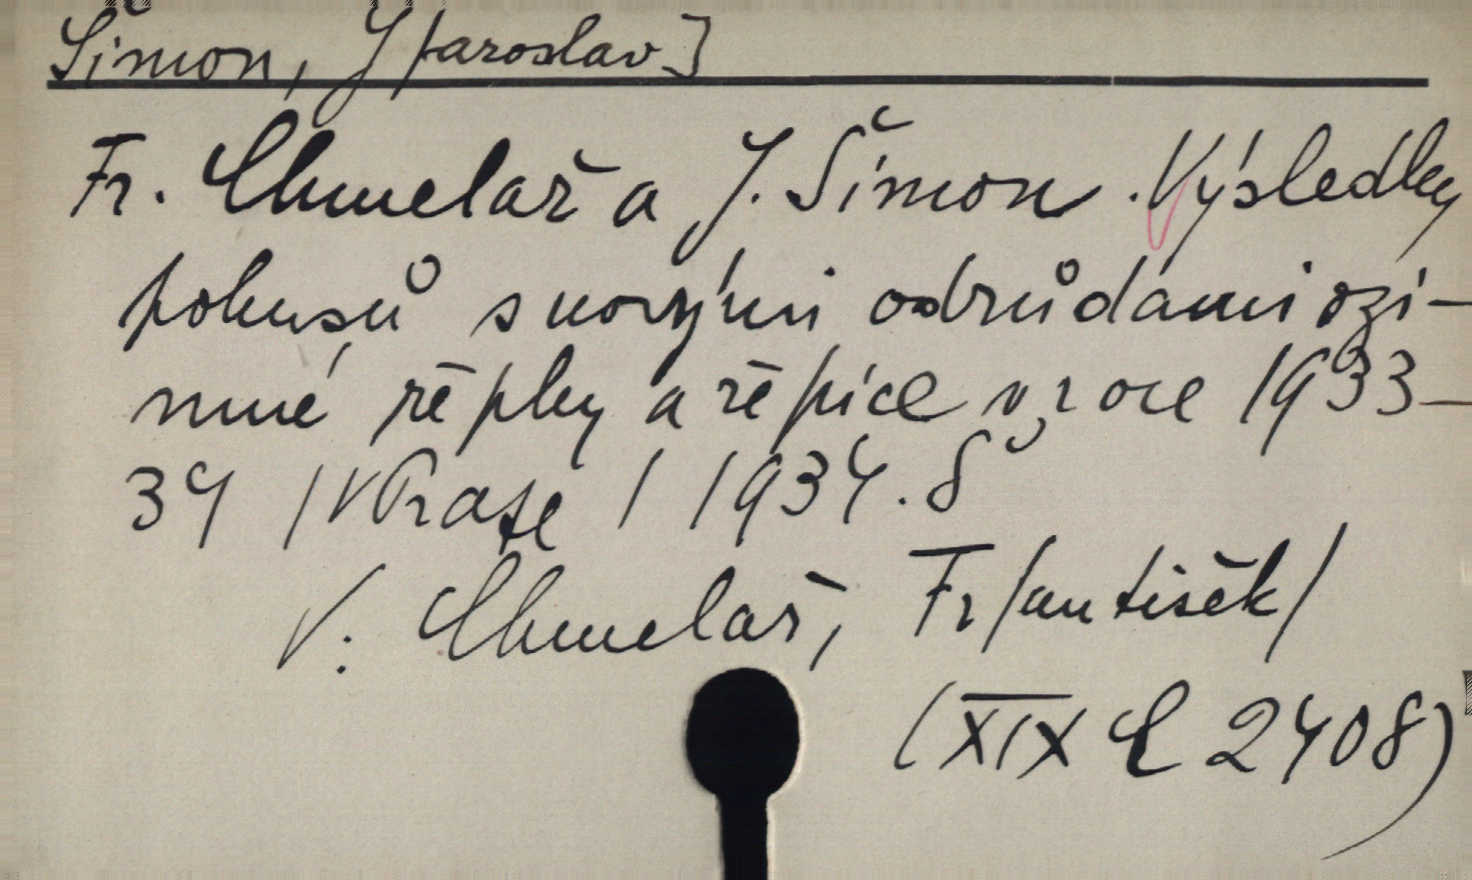 Šimon, J/aroslav]
Fr. Chmelař a J. Šimon. Výsledky
pokusů s novými odrůdami ozi-
mné řepky a řepice v roce 1933-
34 /V Praze/ 1934. 8°
V: Chmelař, Fr/antišek/
(XIX C 2408)